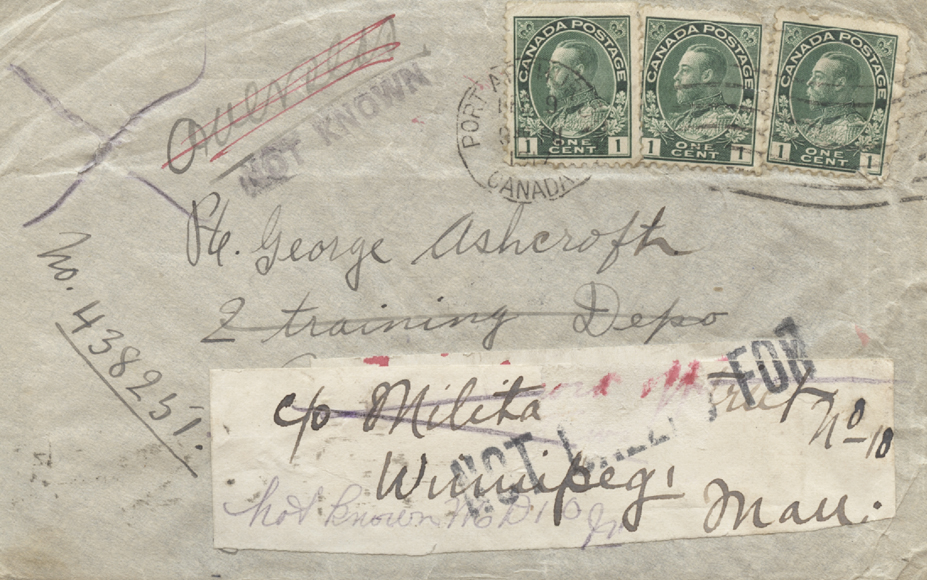 CANADA POSTAGE
1 ONE CENT 1
CANADA POSTAGE
1 ONE CENT 1
CANADA POSTAGE
1 ONE CENT 1
PORT
CANADA
NOT KNOWN
Pte. George Ashcroft
2 training Depo
No. 438251.
c/o Milita
No 10
Winnipeg,
Man.
NOT FOR
not known No D 10